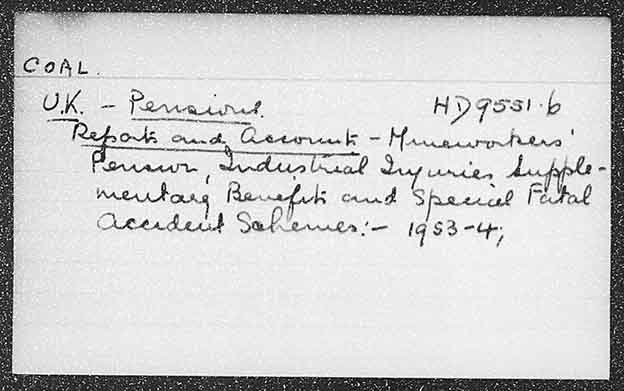 COAL.
U.K. - Pensions. HD9551.6
Reports and Accounts - Mineworkers'
Pension, Industrial Injuries Supple-
mentary Benefits and Special Fatal
Accident Schemes:- 1953-4;